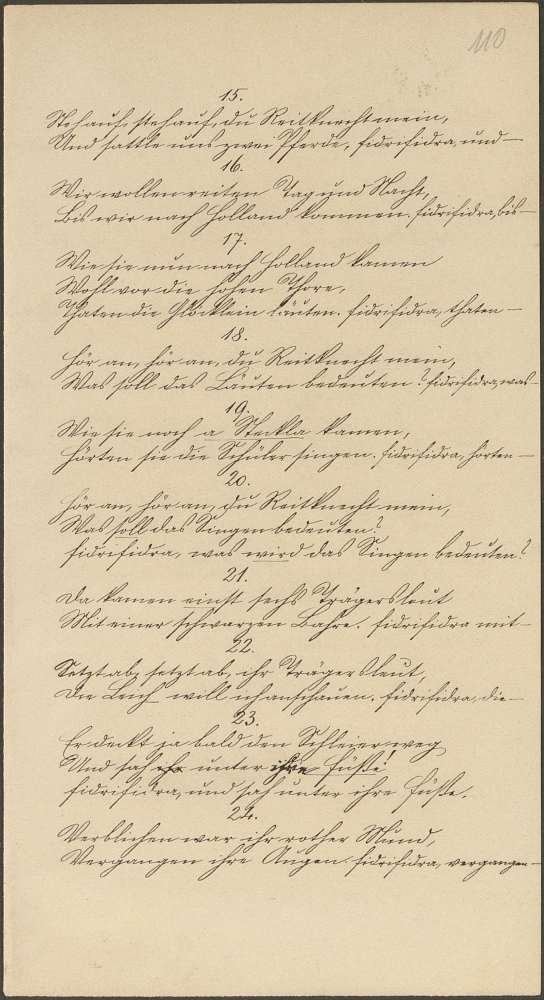 110
15.
Steh auf, steh auf, du Reitknecht mein,
Und sattle uns zwei Pferde, fidrifidra, und —
16.
Wir wollen reiten Tag und Nacht,
Bis wir nach Holland kommen, fidrifidra, bis —
17.
Wie sie nun nach Holland kamen
Wohl vor die hohen Thore,
Thaten die Glöcklein läuten. fidrifidra, thaten —
18.
Hör an, hör an, du Reitknecht mein,
Was soll das Läuten bedeuten? fidrifidra, was —
19.
Wie sie noch a Steckla kamen,
Hörten sie die Schüler singen. fidrifidra, horten —
20.
Hör an, hör an, du Reitknecht mein,
Was soll das Singen bedeuten?
fidrifidra, was wird das Singen bedeuten?
21.
Da kamen einst sechs Trägersleut
Mit einer schwarzen Bahre. fidrifidra mit —
22.
Setzt ab, setzt ab, ihr Trägersleut,
Die Leich will ich anschauen. fidrifidra, die —
23.
Er deckt ja bald den Schleier weg
Und sah ihr unter ihre Füße!
fidrifidra, und sah unter ihre Füße.
24.
Verblichen war ihr rother Mund,
Vergangen ihre Augen. fidrifidra, vergangen —